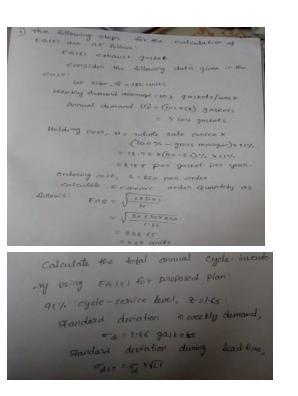 The following steps for the calculation of
EG151 are as follows:
EG151 exhaust gasket
Consider the following data given in the
case:
Lot size, Q = 150 units
Weekly demand average = 102 gaskets/week
Annual demand (D) = (102×52) gaskets
= 5304 gaskets
Holding cost, H = whole sale price ×
(100% - gross margin) × 21%
per gasket per year.
ordering cost, S = $20 per order
calculate Economic order quantity as
follows:
EOQ =
units.
Calculate the total annual cycle-invento
-ry using EG151 for proposed plan:
95% cycle-service level, z = 1.65.
Standard deviation in weekly demand,
σd = 2.86 gaskets
Standard deviation during lead time,
σdLT = σd × √LT